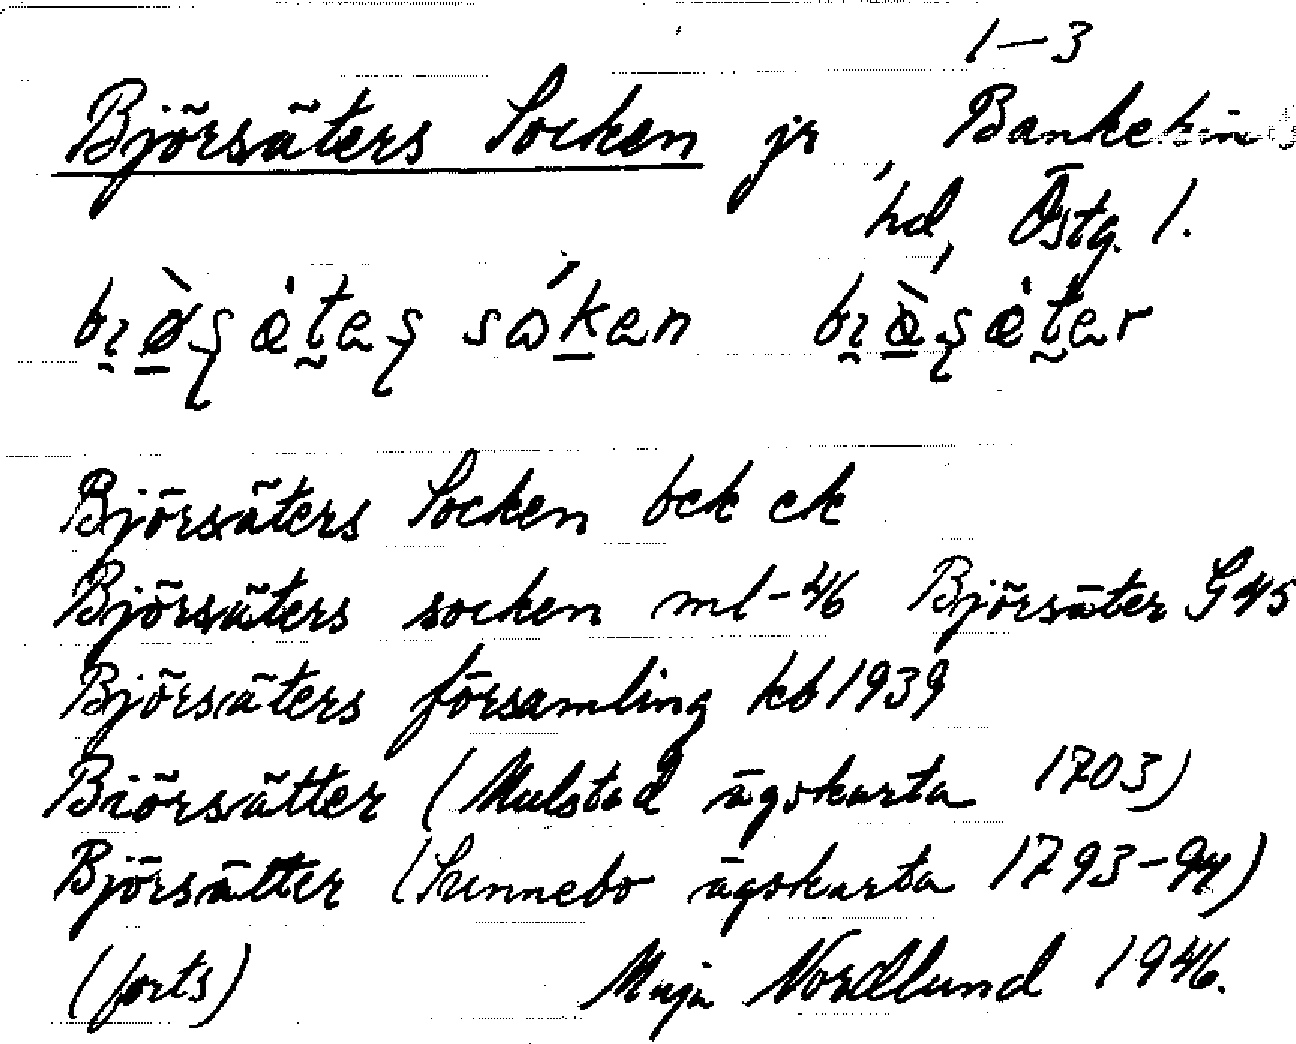 1-3
Björsäters Socken jr, Bankekind
hd, Östg. l.
sȯken
Björsäters Socken bek ek
Björsäters socken ml-46 Björsäter G 45
Björsäters församling kb 1939
Biörsätter (Mulstad ägokarta 1703)
Björsätter (Sunnebo ägokarta 1793-94)
(forts) Maja Nordlund 1946.